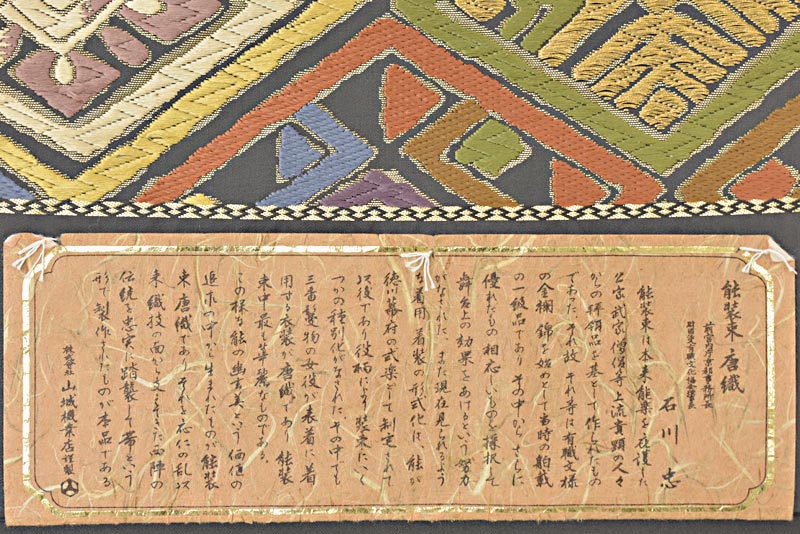 能装束 唐織
前宮内庁京都事務所長
財団法人有職文化協会理事長
石川 忠
能装束は本来能楽を庇護した
公家武官僧侶等上流貴顕の人々
からの拝領品を基として作られたもの
であったそれ故それ等は有職文様
の金襴錦を始めとして当時の舶載
の一級品でありその中からさらに
優れたもの相応しいものを撰択して
舞台上の効果をあげるという努力
がなされたまた現在見られるよう
な着用着装の形式化は能が
徳川幕府の式楽として制定されて
以後であり役柄により装束にいく
つかの種別化がなされたその中でも
三番鬘物の女役が表着に着
用する衣裳が唐織であり能装
束中最も華麗なものである
この様な能の幽玄美という価値の
追求の中で生まれたものが能装
束唐織でありそれを応仁の乱以
来織技の面からささえてきた西陣の
伝統を忠実に踏襲して帯という
形で製作されたものが本品である
株式会社 山城機業店謹製